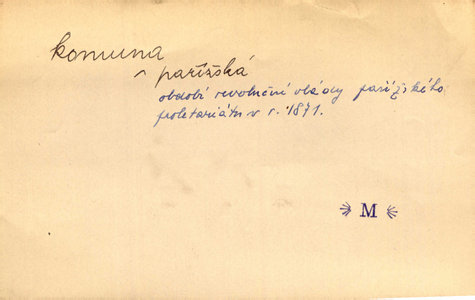 komuna
^ pařížská
období revoluční vlády pařížského
proletariátu v r. 1871.
M